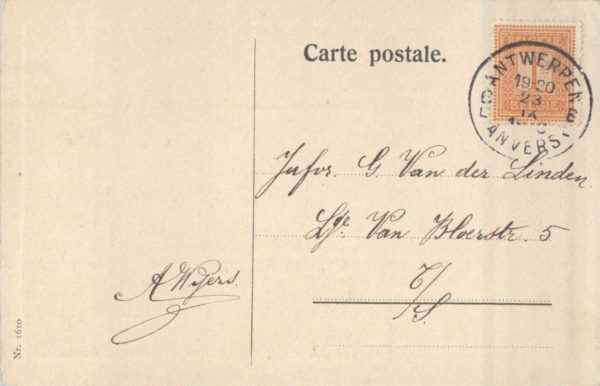 Carte postale.
BELGIË
1
BELGIE
ANTWERPEN 6
19-20
23
IX
ANVERS
Jufvr. G. Van der Linden
Lge. Van Bloerstr. 5
T/S.
A Wyers.
Nr. 1610